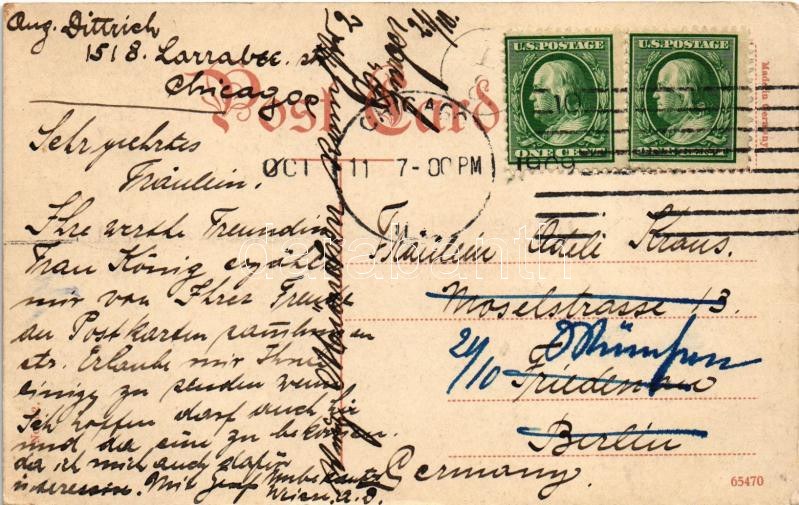 Aug. Dittrich
1518. Larrabee. st
Chicago
Post Card
U.S.POSTAGE
ONE CENT
U.S.POSTAGE
ONE CENT
CHICAGO
OCT 11 7-00PM
1909
ILL.
Made in Germany
Sehr geehrtes
Fräulein.
Ihre werthe Freundin
Frau König erzählt
mir von Ihrer Freude
an Postkarten sammeln
etr. Erlaube mir Ihnen
einige zu senden wenn
Ich hoffen darf auch
und da eine zu bekommen.
da ich mich auch dafür
interessire. Mit Gruß Unbekannter
Wiese. A. D.
Fräulein Adeli Kraus.
Moselstrasse 13.
24/10
Friedenau
Berlin
Germany.
München
24/10.
65470